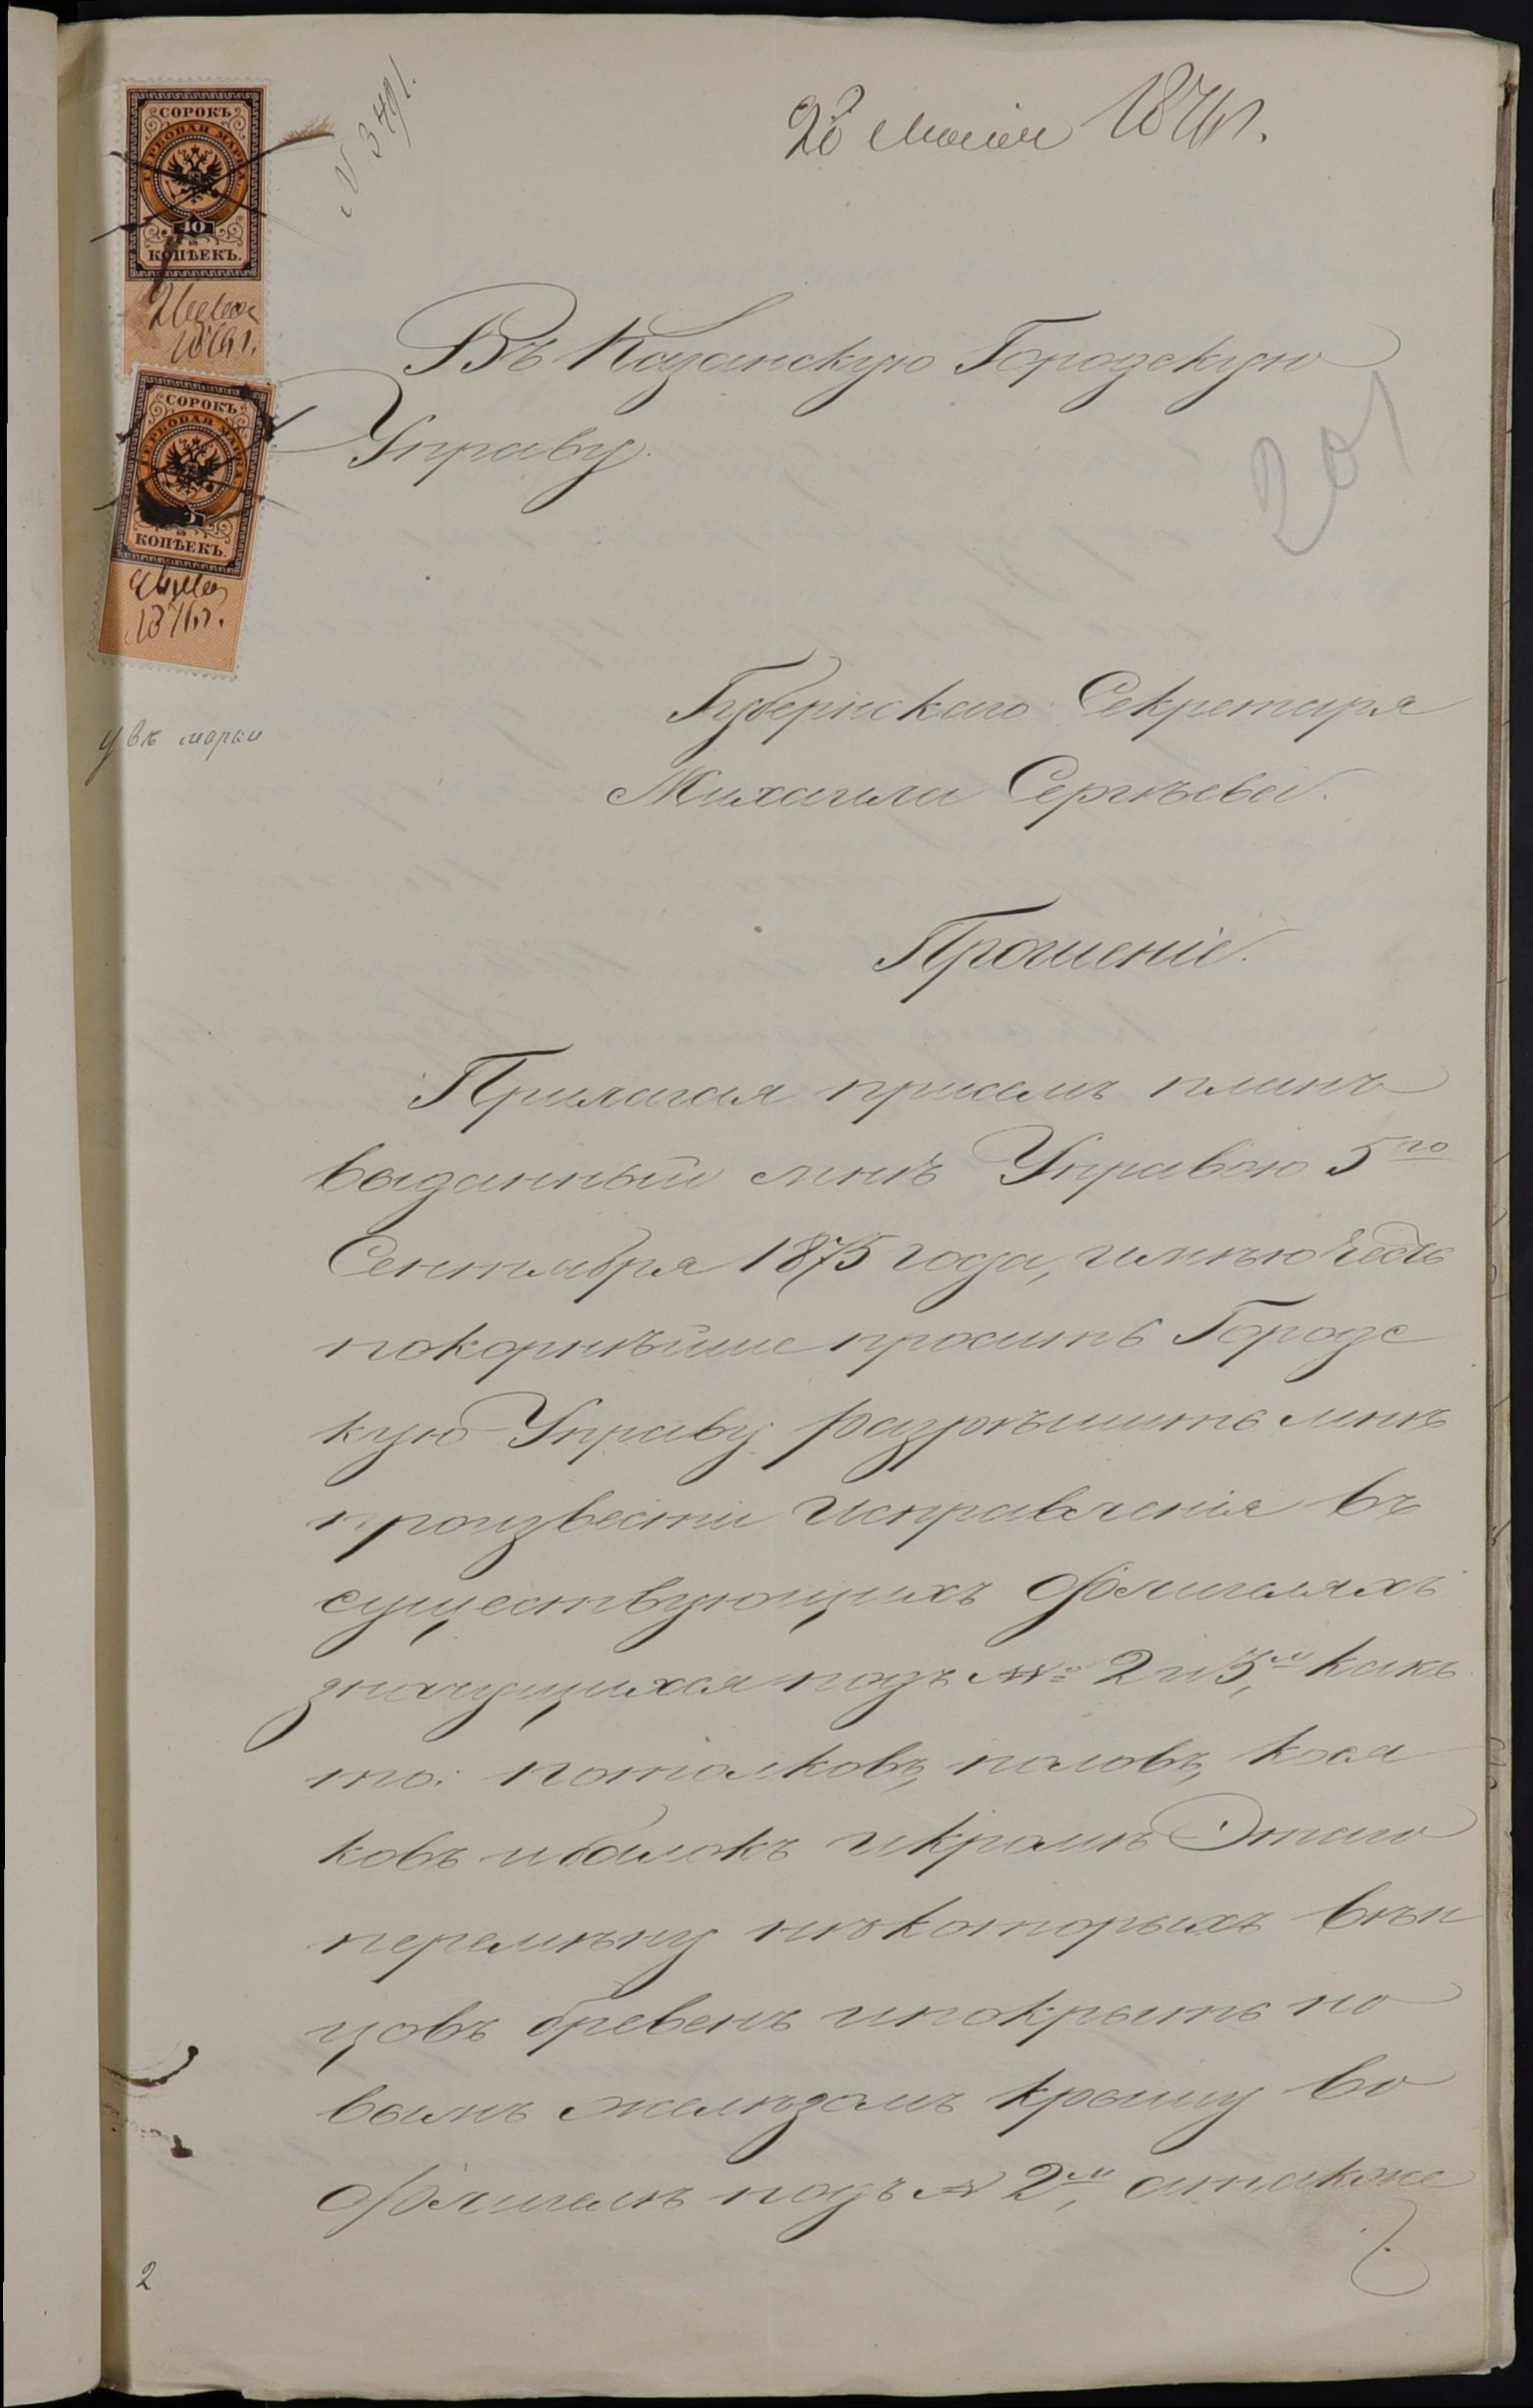 № 3491.
28 Мая 1876 г.
СОРОКЪ
ГЕРБОВАЯ МАРКА
40
КОПѢЕКЪ.
1876 г.
СОРОКЪ
ГЕРБОВАЯ МАРКА
КОПѢЕКЪ.
1876 г.
Въ Казанскую Городскую
Управу.
201
Губернскаго Секретаря
Михаила Сергѣева.
марки
Прошеніе.
Прилагая присемъ планъ
выданный мнѣ Управою 5го
Сентября 1875 года, имѣю честь
покорнѣйше просить Городс
кую Управу разрѣшить мнѣ
произвести исправленія въ
существующихъ флигеляхъ
значущихся подъ №№ 2 и 3м, какъ
то: потолковъ, половъ, кося
ковъ ибалокъ икромѣ Этаго
перемѣну нѣкоторыхъ вѣн
цовъ бревенъ ипокрыть но
вымъ желѣзомъ крышу во
флигелѣ подъ № 2м, атакже
2